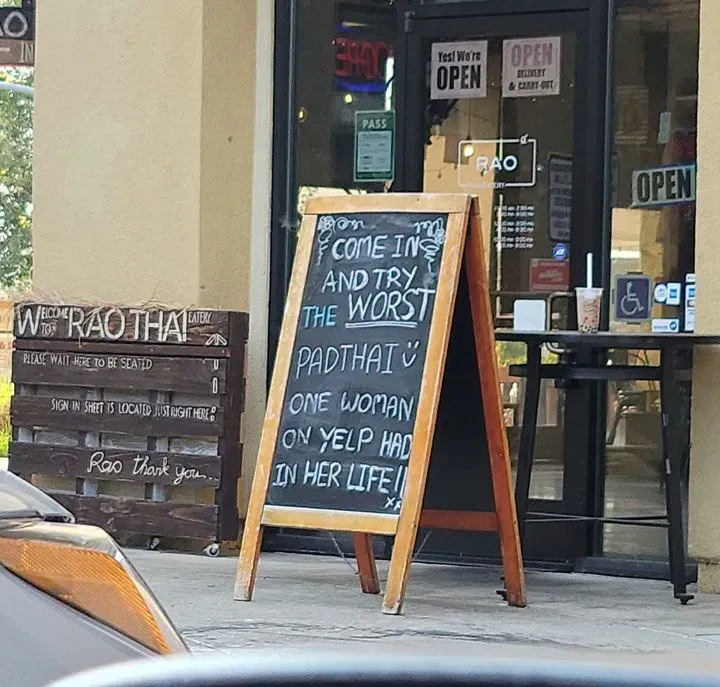 WELCOME TO RAO THAI EATERY
PLEASE WAIT HERE TO BE SEATED
SIGN IN SHEET IS LOCATED JUST RIGHT HERE
Rao thank you..
COME IN
AND TRY
THE WORST
PADTHAI
ONE WOMAN
ON YELP HAD
IN HER LIFE!!
XX
Yes! We're
OPEN
OPEN
DELIVERY
& CARRY-OUT
PASS
RAO
OPEN